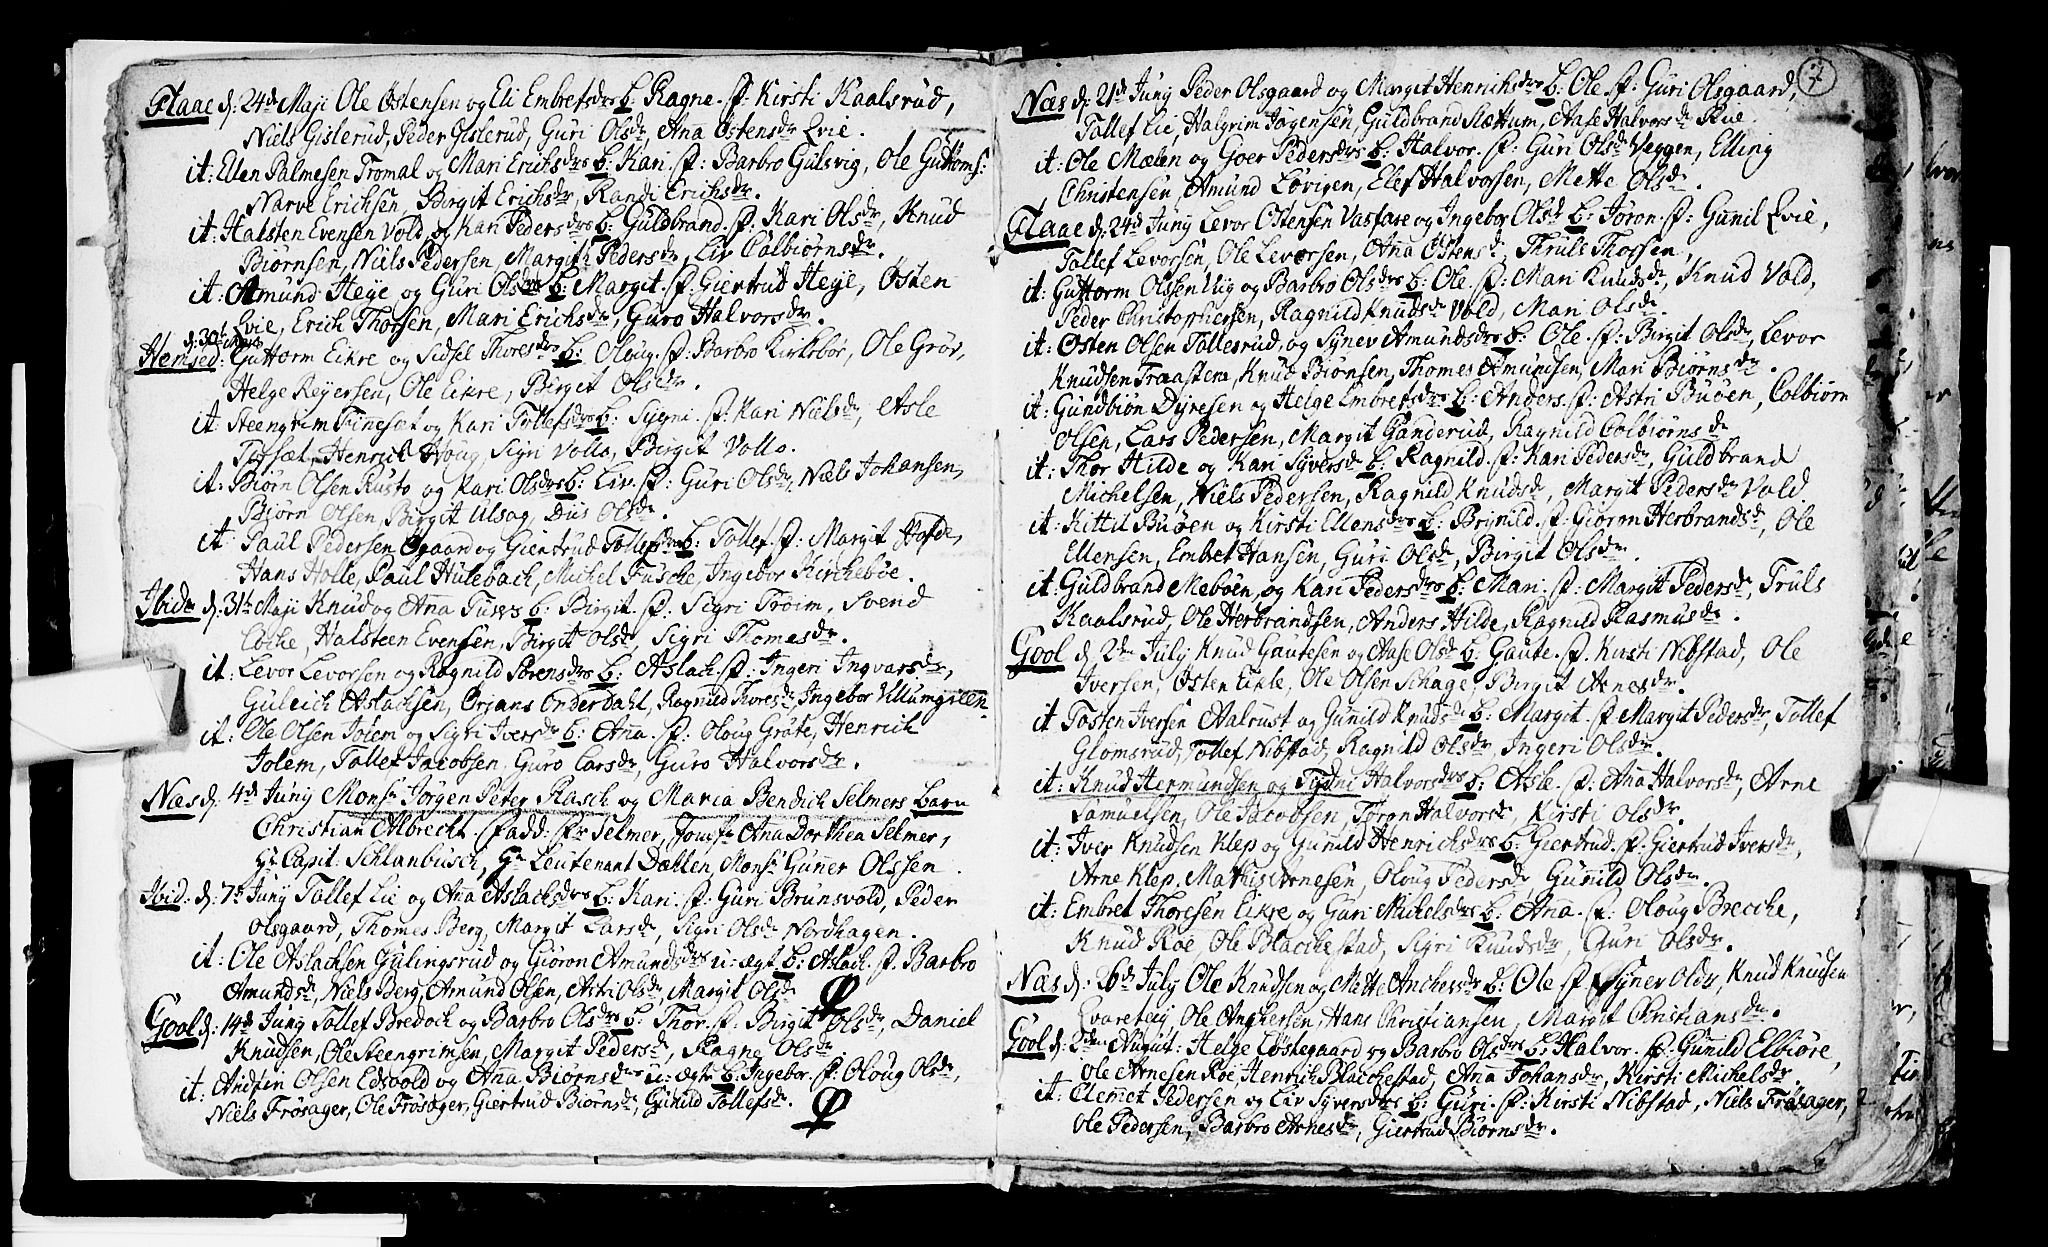 Flaae d: 24de Maji Ole Östensen og Eli Embretsdrs b: Ragne. f: Kirsti Kaalsrud,
Niels Gislerud, Peder Gislerud, Guri Olsdr, Anna Östensdr Evie.
it: Ellen Palmesen Tromal og Mari Erichsdrs b: Kari. f: Barbro Gulsvig, Ole Guttorms:
Narve Erichsen, Birgit Erichsdr, Randi Erichsdr.
it: Halsten Evensen Vold og Kari Pedersdrs b: Guldbrand. f: Kari Olsdr, Knud
Biørnsen, Niels Pedersen, Margith Pedersdr, Liv Colbiørnsdr.
it: Amund Heye og Guri Olsdrs b: Margit. f: Giertrud Heye, Östen
Evie, Erich Thorsen, Mari Erichsdr, Guro Halvorsdr.
d: 30t Maji
Hemsed: Guttorm Eikre og Sidsel Thoresdrs b: Oloug. f: Barbro Kirkebør, Ole Grøv,
Helge Reyersen, Ole Eikre, Birgit Olsdr.
it: Steengrim Finneset og Kari Tollefsdrs b: Sygni. f: Kari Nielsdr, Asle
Thosæt, Henrich Houg, Sigri Vollo, Birgit Vollo.
it: Biørn Olsen Rusto og Kari Olsdrs b: Liv. f: Guri Olsdr, Niels Johansen,
Biørn Olsen, Birgit Ulsag, Diis Olsdr.
it: Paul Pedersen Øgaard og Giertrud Tollefsdrs b: Tollef. f: Margit Holde,
Hans Holle, Paul Hulebach, Michel Fusche, Ingebor Kirchebøe.
Ibidm d: 31te Maji Knud og Anna Tuvs b: Birgit. f: Sigri Trøim, Svend
Løche, Halsteen Evensen, Birgit Olsdr, Sigri Thomasdr.
it: Levor Levorsen og Ragnild Sørensdrs b: Aslach. f: Ingeri Ingvarsdr,
Guleich Aslachsen, Ørjans Onderdahl, Ragnild Thoresdr, Ingebor Ulumgreen.
it: Ole Olsen Jolem og Sigri Iversdr b: Anna. f: Oloug Gröte, Henrich
Jolem, Tollef Jacobsen, Guro Larsdr, Guro Halvorsdr.
Næs d: 4de Juny Monsr Jörgen Peter Rasch og Maria Bendich Selmers Barn
Christian Albrecht. fadd: Fr Selmer, Jomfr Anna Dorthea Selmer,
Hr Capit: Schlanbusch, Hr Leutenant Dæhlen, Monsr Guner Olssen.
Ibid: d: 7de Juny Tollef Lie og Anna Aslachsdrs b: Kari. f: Guri Brunsvold, Peder
Olsgaard, Thomes Berg, Margit Larsdr, Sigri Olsdr Nordhagen.
it: Ole Aslachsen Gulingsrud og Giøron Amundsdrs u: ægt b: Aslach. f: Barbro
Amundsdr, Niels Berg, Amund Olsen, Astri Olsdr, Margit Olsdr
Gool d: 14de Juny Tollef Bredoch og Barbro Olsdrs b: Thor. f: Birgit Olsdr, Daniel
Knudsen, Ole Steengrimsen, Margit Pedersdr, Ragne Olsdr.
it: Andfin Olsen Edsvold og Anna Biørnsdrs u: ægte b: Ingebor. f: Oloug Olsdr,
Niels Frøsager, Ole Frøsager, Giertrud Biørnsdr, Gunild Tollefsdr.
7
Næs d: 21de Juny Peder Olsgaard og Margit Henrichsdrs b: Ole. f: Guri Olsgaard,
Tollef Lie, Halgrim Jørgensen, Guldbrand Slettum, Aase Halvorsdr Rue.
it: Ole Mælen og Goer Pedersdrs b: Halvor. f: Guri Olsdr Veggen, Elling
Christensen, Amund Løvigen, Elef Halvorsen, Mette Olsdr.
Flaae d: 24de Juny Levor Østensen Vasfare og Ingebor Olsdr b: Jøron. f: Gunil Evie,
Tollef Levorsen, Ole Levorsen, Anna Østensdr, Thrule Thorsen,
it: Guttorm Olssen Uig og Barbro Olsdrs b: Ole. f: Mari Knudsdr, Knud Vold,
Peder Christophersen, Ragnild Knudsdr Vold, Mari Olsdr.
it: Østen Olsen Tollesrud og Synev Amundsdrs b: Ole. f: Birgit Olsdr, Levor
Knudsen Traastem, Knud Biønsen, Thomes Amundsen, Mari Biørnsdr.
it: Gundbiøn Dyresen og Helge Embretsdrs b: Anders. f: Astri Buøen, Colbiørn
Olsen, Lars Pedersen, Margit Randerud, Ragnild Colbiørnsdr
it: Thor Hilde og Kari Syversdr b: Ragnild. f: Kari Pedersdr, Guldbrand
Michelsen, Niels Pedersen, Ragnild Knudsdr, Margit Pedersdr Vold
it: Kittil Buøen og Kirsti Ellensdrs b: Brynild. f: Giorm Herbrandsdr, Ole
Ellensen, Embret Hansen, Guri Olsdr, Birgit Olsdr.
it: Guldbrand Mebøen, og Kari Pedersdrs b: Mari. f: Margit Pedersdr, Truls
Kaalsrud, Ole Herbrandsen, Anders Hilde, Ragnild Rasmusdr.
Gool d: 2den July Knud Gautesen og Aase Olsdr b: Gaute. f. Kirsti Nibstad, Ole
Iversen, Østen Eikle, Ole Olsen Schage, Birgit Arnesdr.
it Tosten Iversen Aalrust og Gunild Knudsdr b: Margit. f: Margit Pedersdr, Tollef
Glomsrud, Tollef Nibstad, Ragnild Olsdr, Ingeri Olsdr.
it: Knud Hermundsen og Tydni Halvorsdrs b: Asle. f: Anna Halvorsdr, Arne
Samuelsen, Ole Jacobsen, Tøron Halvorsdr, Kirsti Olsdr.
it: Iver Knudsen Klep og Gunild Henrichsdrs b: Giertrud. f. Giertrud Iversdr,
Arne Klep, Mathis Arnesen, Oloug Pedersdr, Gunild Olsdr.
it: Embret Thoresen Eikre og Guri Michelsdrs b: Anna. f: Oloug Brecche,
Knud Roe, Ole Blacchestad, Sigri Knudsdr, Guri Olsdr.
Næs d: 26de July Ole Knudsen og Mette Anchersdr b: Ole. f: Synev Oldr, Knud Knudsen
Evareteig, Ole Anchersen, Hans Christiansen, Margit Christiansdr.
Gool d: 2den August: Helge Løstegaard og Barbro Olsdrs b: Halvor. f: Gunild Elbiøre,
Ole Arnesen Roe, Henrich Blacchestad, Anna Johansdr, Kirsti Michelsdr.
it: Clemet Pedersen og Liv Syversdrs b: Guri. f: Kirsti Nibstad, Niels Frøsager,
Ole Pedersen, Barbro Arnesdr, Giertrud Biørnsdr.